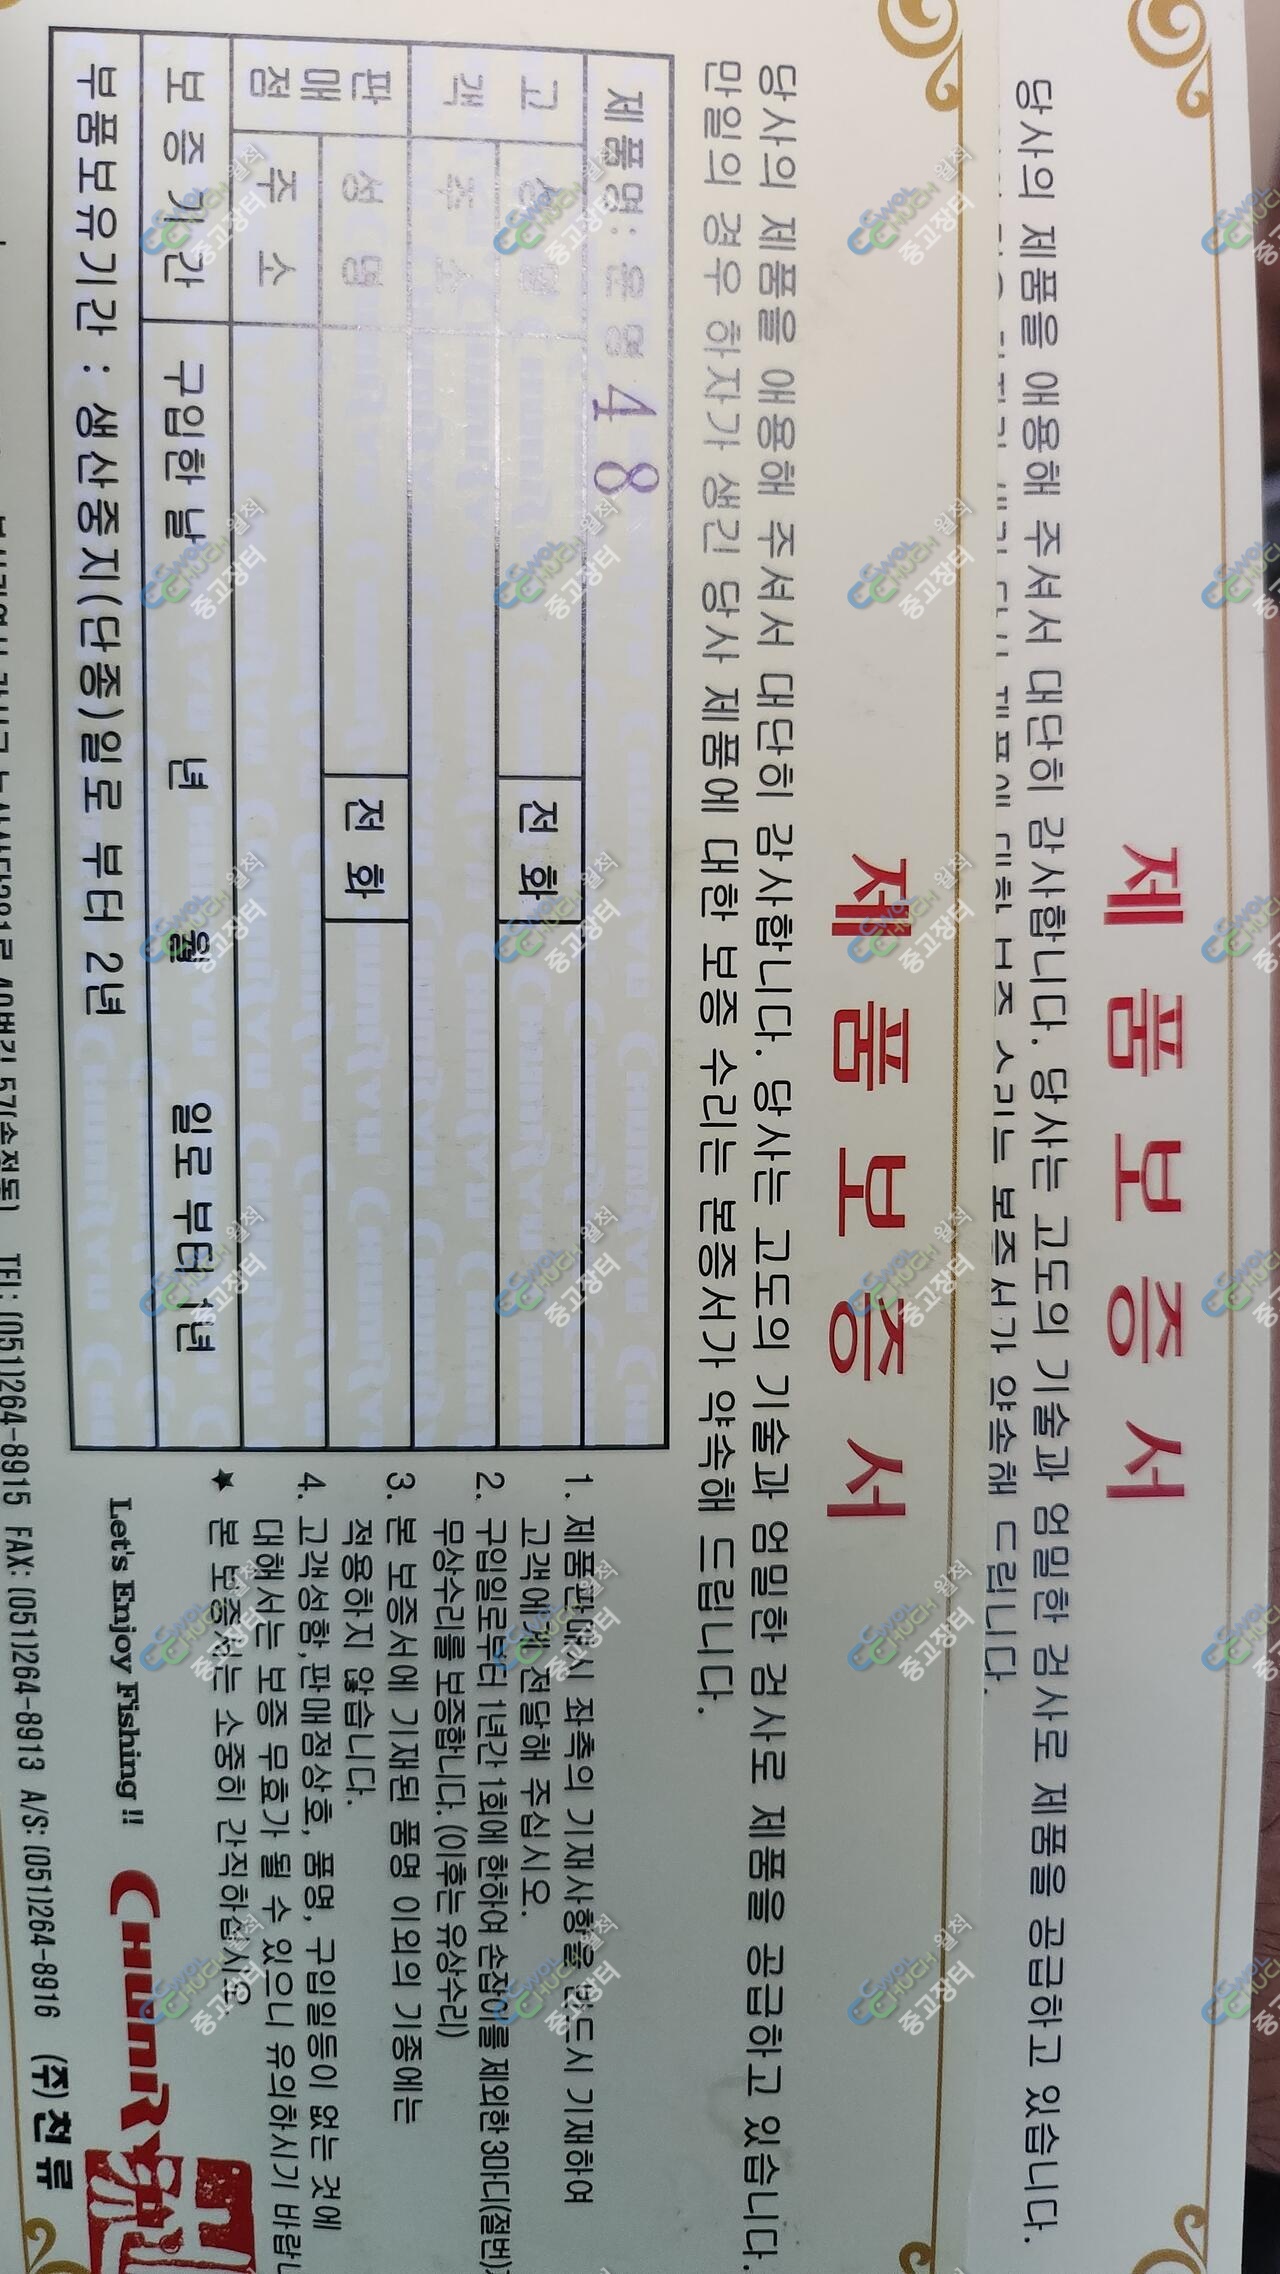 제 품 보 증 서
당사의 제품을 애용해 주셔서 대단히 감사합니다. 당사는 고도의 기술과 엄밀한 검사로 제품을 공급하고 있습니다.
제 품 보 증 서
당사의 제품을 애용해 주셔서 대단히 감사합니다. 당사는 고도의 기술과 엄밀한 검사로 제품을 공급하고 있습니다.
만일의 경우 하자가 생긴 당사 제품에 대한 보증 수리는 본증서가 약속해 드립니다.
제품명: 운명 48
고객 성명 전화
주소
판매점 성명 전화
주소
보증기간 구입한 날 년 월 일로 부터 1년
부품보유기간 : 생산중지(단종)일로 부터 2년
1. 제품판매시 좌측의 기재사항을 반드시 기재하여
고객에게 전달해 주십시오.
2. 구입일로부터 1년간 1회에 한하여 손잡이를 제외한 3마디(절번)
무상수리를 보증합니다. (이후는 유상수리)
3. 본 보증서에 기재된 품명 이외의 기종에는
적용하지 않습니다.
4. 고객성함, 판매점상호, 품명, 구입일등이 없는 것에
대해서는 보증 무효가 될 수 있으니 유의하시기 바랍니
★ 본 보증서는 소중히 간직하십시오.
Let's Enjoy Fishing !! CHUNRYU
57(송정동) TEL: (051)264-8915 FAX: (051)264-8913 A/S: (051)264-8916 (주)천류
WOLCHUCK 월척 중고장터